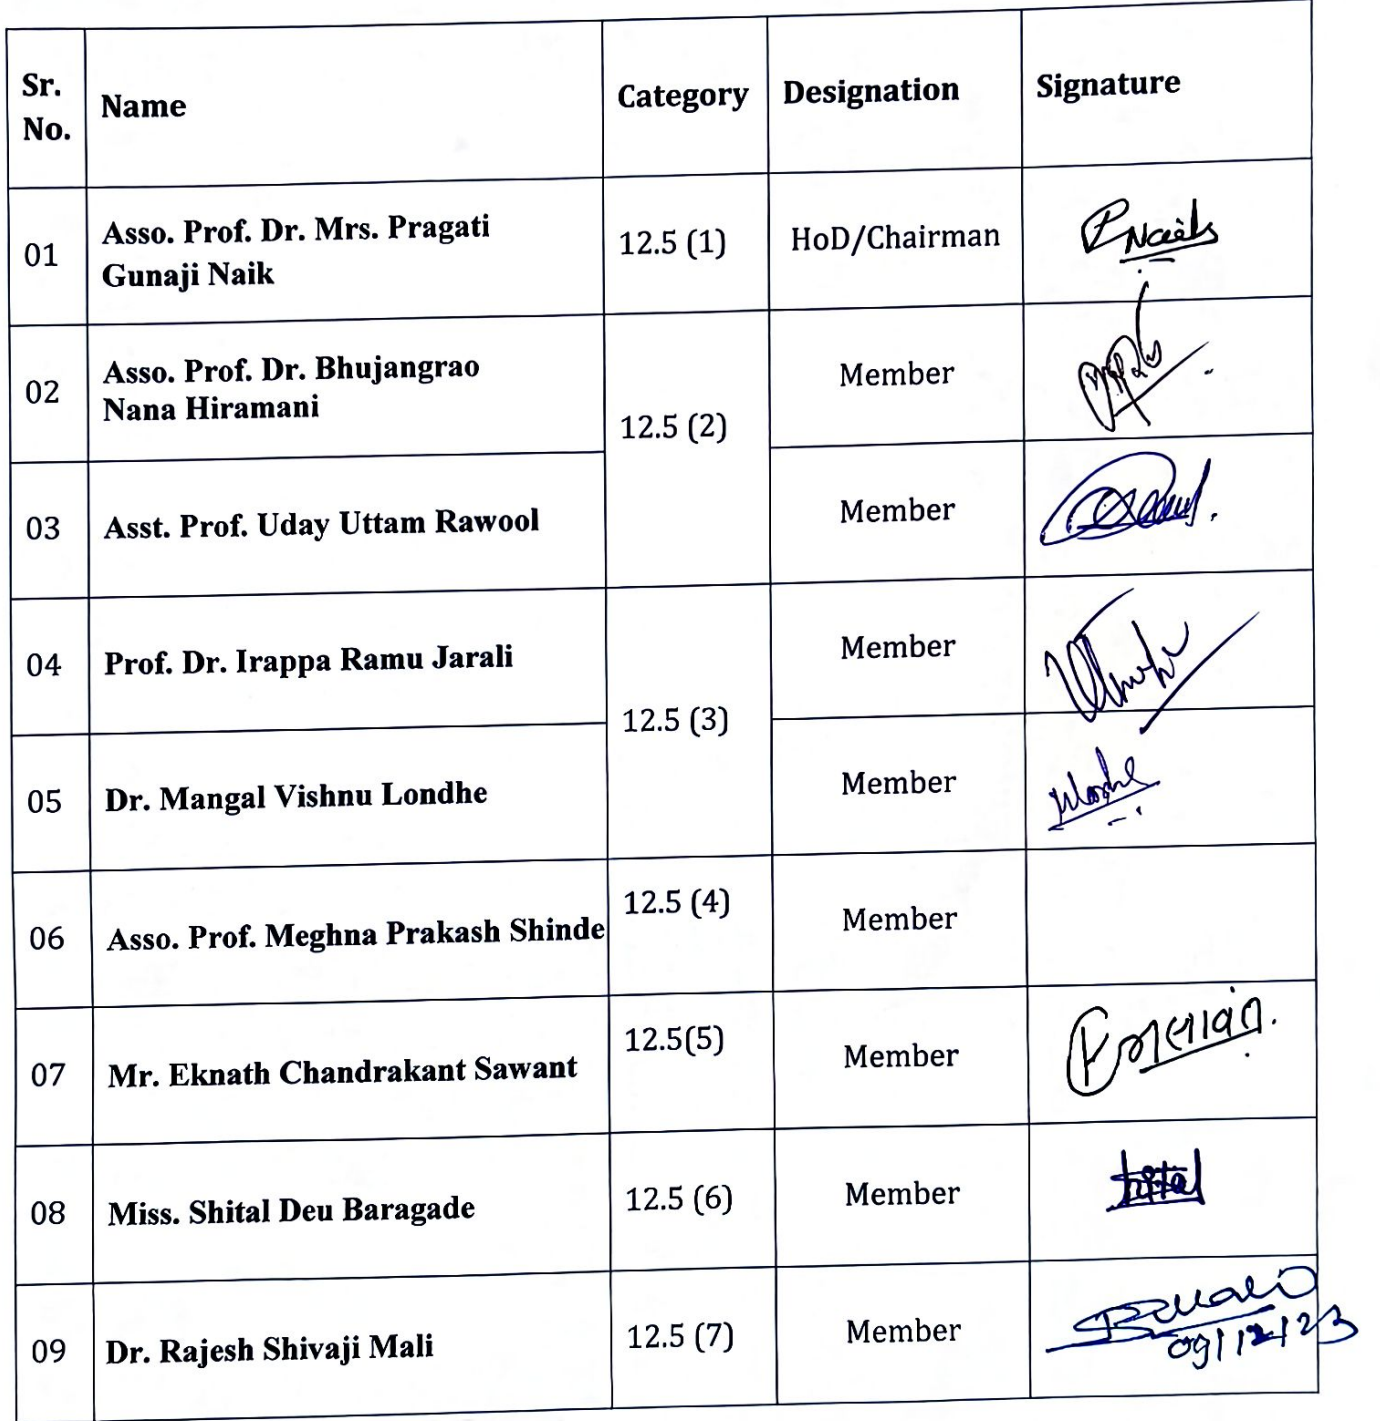 Sr. No.
Name
Category
Designation
Signature
01
Asso. Prof. Dr. Mrs. Pragati
Gunaji Naik
12.5 (1)
HoD/Chairman
PNaik
02
Asso. Prof. Dr. Bhujangrao
Nana Hiramani
12.5 (2)
Member
03
Asst. Prof. Uday Uttam Rawool
Member
04
Prof. Dr. Irappa Ramu Jarali
12.5 (3)
Member
05
Dr. Mangal Vishnu Londhe
Member
06
Asso. Prof. Meghna Prakash Shinde
12.5 (4)
Member
07
Mr. Eknath Chandrakant Sawant
12.5(5)
Member
08
Miss. Shital Deu Baragade
12.5 (6)
Member
09
Dr. Rajesh Shivaji Mali
12.5 (7)
Member
09/12/23